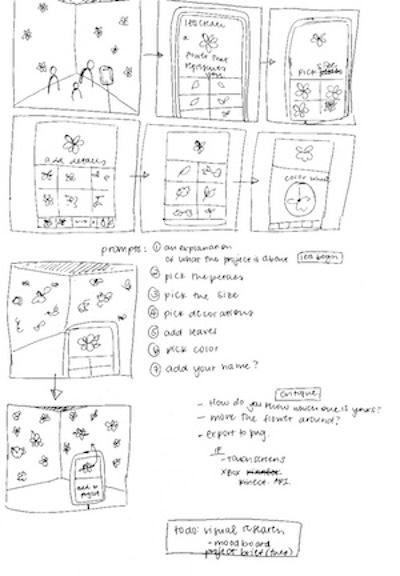 let's create
a
flower that
represents
you
pick size
add details
color wheel
prompts: ① an explanation
of what the project is about
let's begin
② pick the petals
③ pick the size
④ pick decorations
⑤ add leaves
⑥ pick color
⑦ add your name?
critique
- How do you know which one is yours?
- move the flower around?
- Export to png.
IF
- touchscreens
XBOX
kinect. API.
add to
project
todo: visual research
- moodboard
project brief (tues)